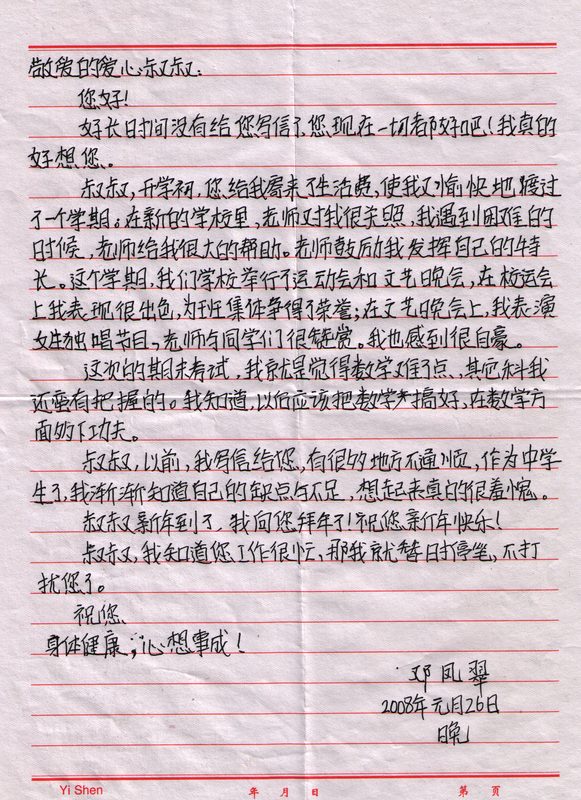 敬爱的爱心叔叔:
您好!
好长时间没有给您写信了,您现在一切都好吧!我真的
好想您。
叔叔,开学初,您给我寄来了生活费,使我又愉快地渡过
了一个学期。在新的学校里,老师对我很关照,我遇到困难的
时候,老师给我很大的帮助。老师鼓励我发挥自己的特
长。这个学期,我们学校举行了运动会和文艺晚会,在校运会
上我表现很出色,为班集体争得了荣誉;在文艺晚会上,我表演
女生独唱节目,老师与同学们很赞赏。我也感到很自豪。
这次的期末考试,我就是觉得数学难了点,其它科我
还蛮有把握的。我知道,以后应该把数学搞好,在数学方
面多下功夫。
叔叔,以前,我写信给您,有很多地方不通顺,作为中学
生了,我渐渐知道自己的缺点与不足,想起来真的很羞愧。
叔叔新年到了,我向您拜年了!祝您新年快乐!
叔叔,我知道您工作很忙,那我就暂时停笔,不打
扰您了。
祝您
身体健康,心想事成!
邓凤翠
2008年元月26日
晚
Yi Shen 年 月 日 第 页